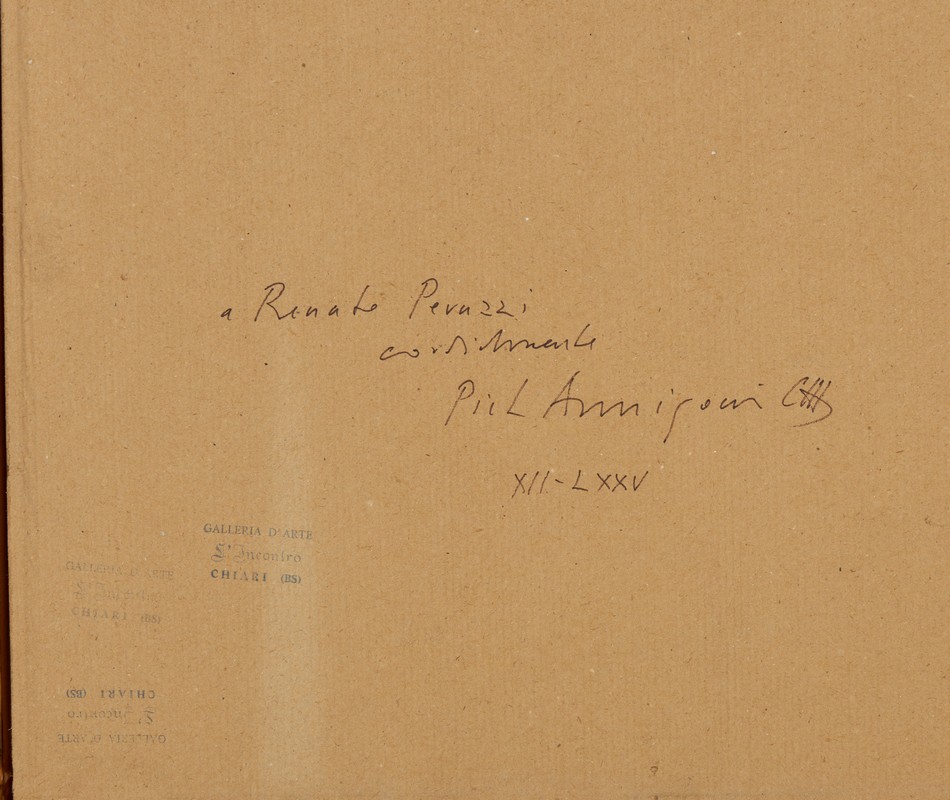 a Renato Peruzzi
cordialmente
Piet Annigoni
XII-LXXV
GALLERIA D'ARTE
L'Incontro
CHIARI (BS)
GALLERIA D'ARTE
L'Incontro
CHIARI (BS)
GALLERIA D'ARTE
L'Incontro
CHIARI (BS)